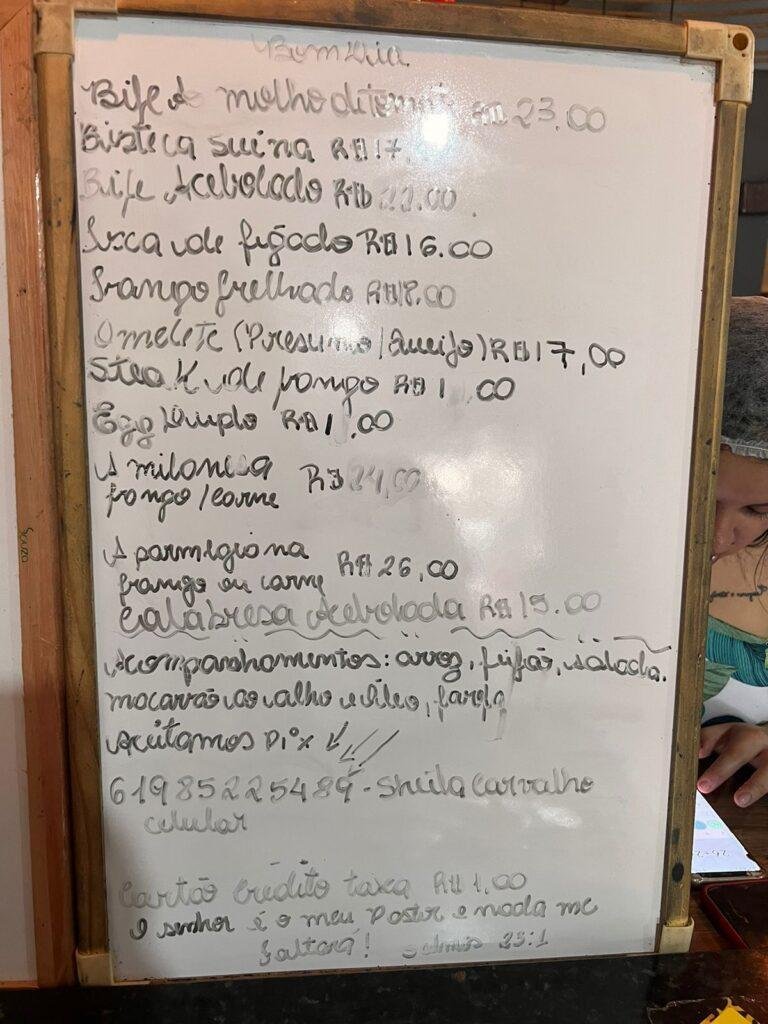 Bom dia
Bife Ao molho de tomate R$ 23.00
Bisteca suina R$ 17,
Bife Acebolado R$ 22.00
Isca de figado R$ 16.00
Frango Grelhado R$ 18.00
Omelete (Presunto/Queijo) R$ 17,00
Steak de frango R$ 1 ,00
Egg Duplo R$ 1 ,00
A milanesa
frango/carne R$ 24,00
A parmegiana
frango ou carne R$ 26,00
Calabresa Acebolada R$ 15.00
Acompanhamentos: arroz, feijão, salada.
macarrão ao alho e óleo, farofa
Aceitamos Pix
61985225489 - Sheila Carvalho
celular
Cartão Crédito taxa R$ 1,00
O senhor é o meu Pastor e nada me
faltará! Salmos 23:1